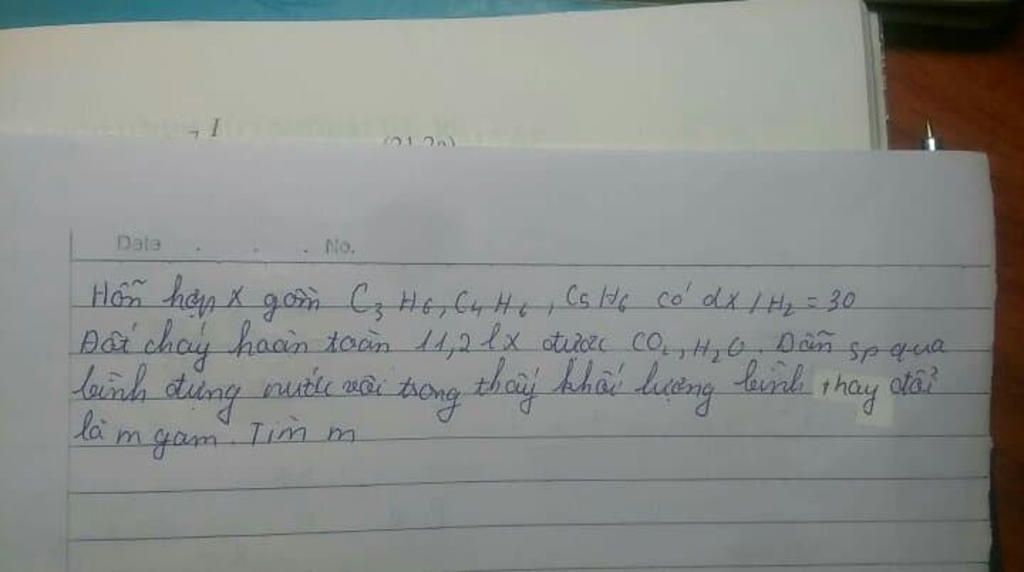 I
(21.2a)
Date . . . No.
Hỗn hợp X gồm C3H6, C4H6, C5H6 có dX/H2 = 30
Đốt cháy hoàn toàn 11,2 l X được CO2, H2O. Dẫn sp qua
bình đựng nước vôi trong thấy khối lượng bình thay đổi
là m gam. Tìm m